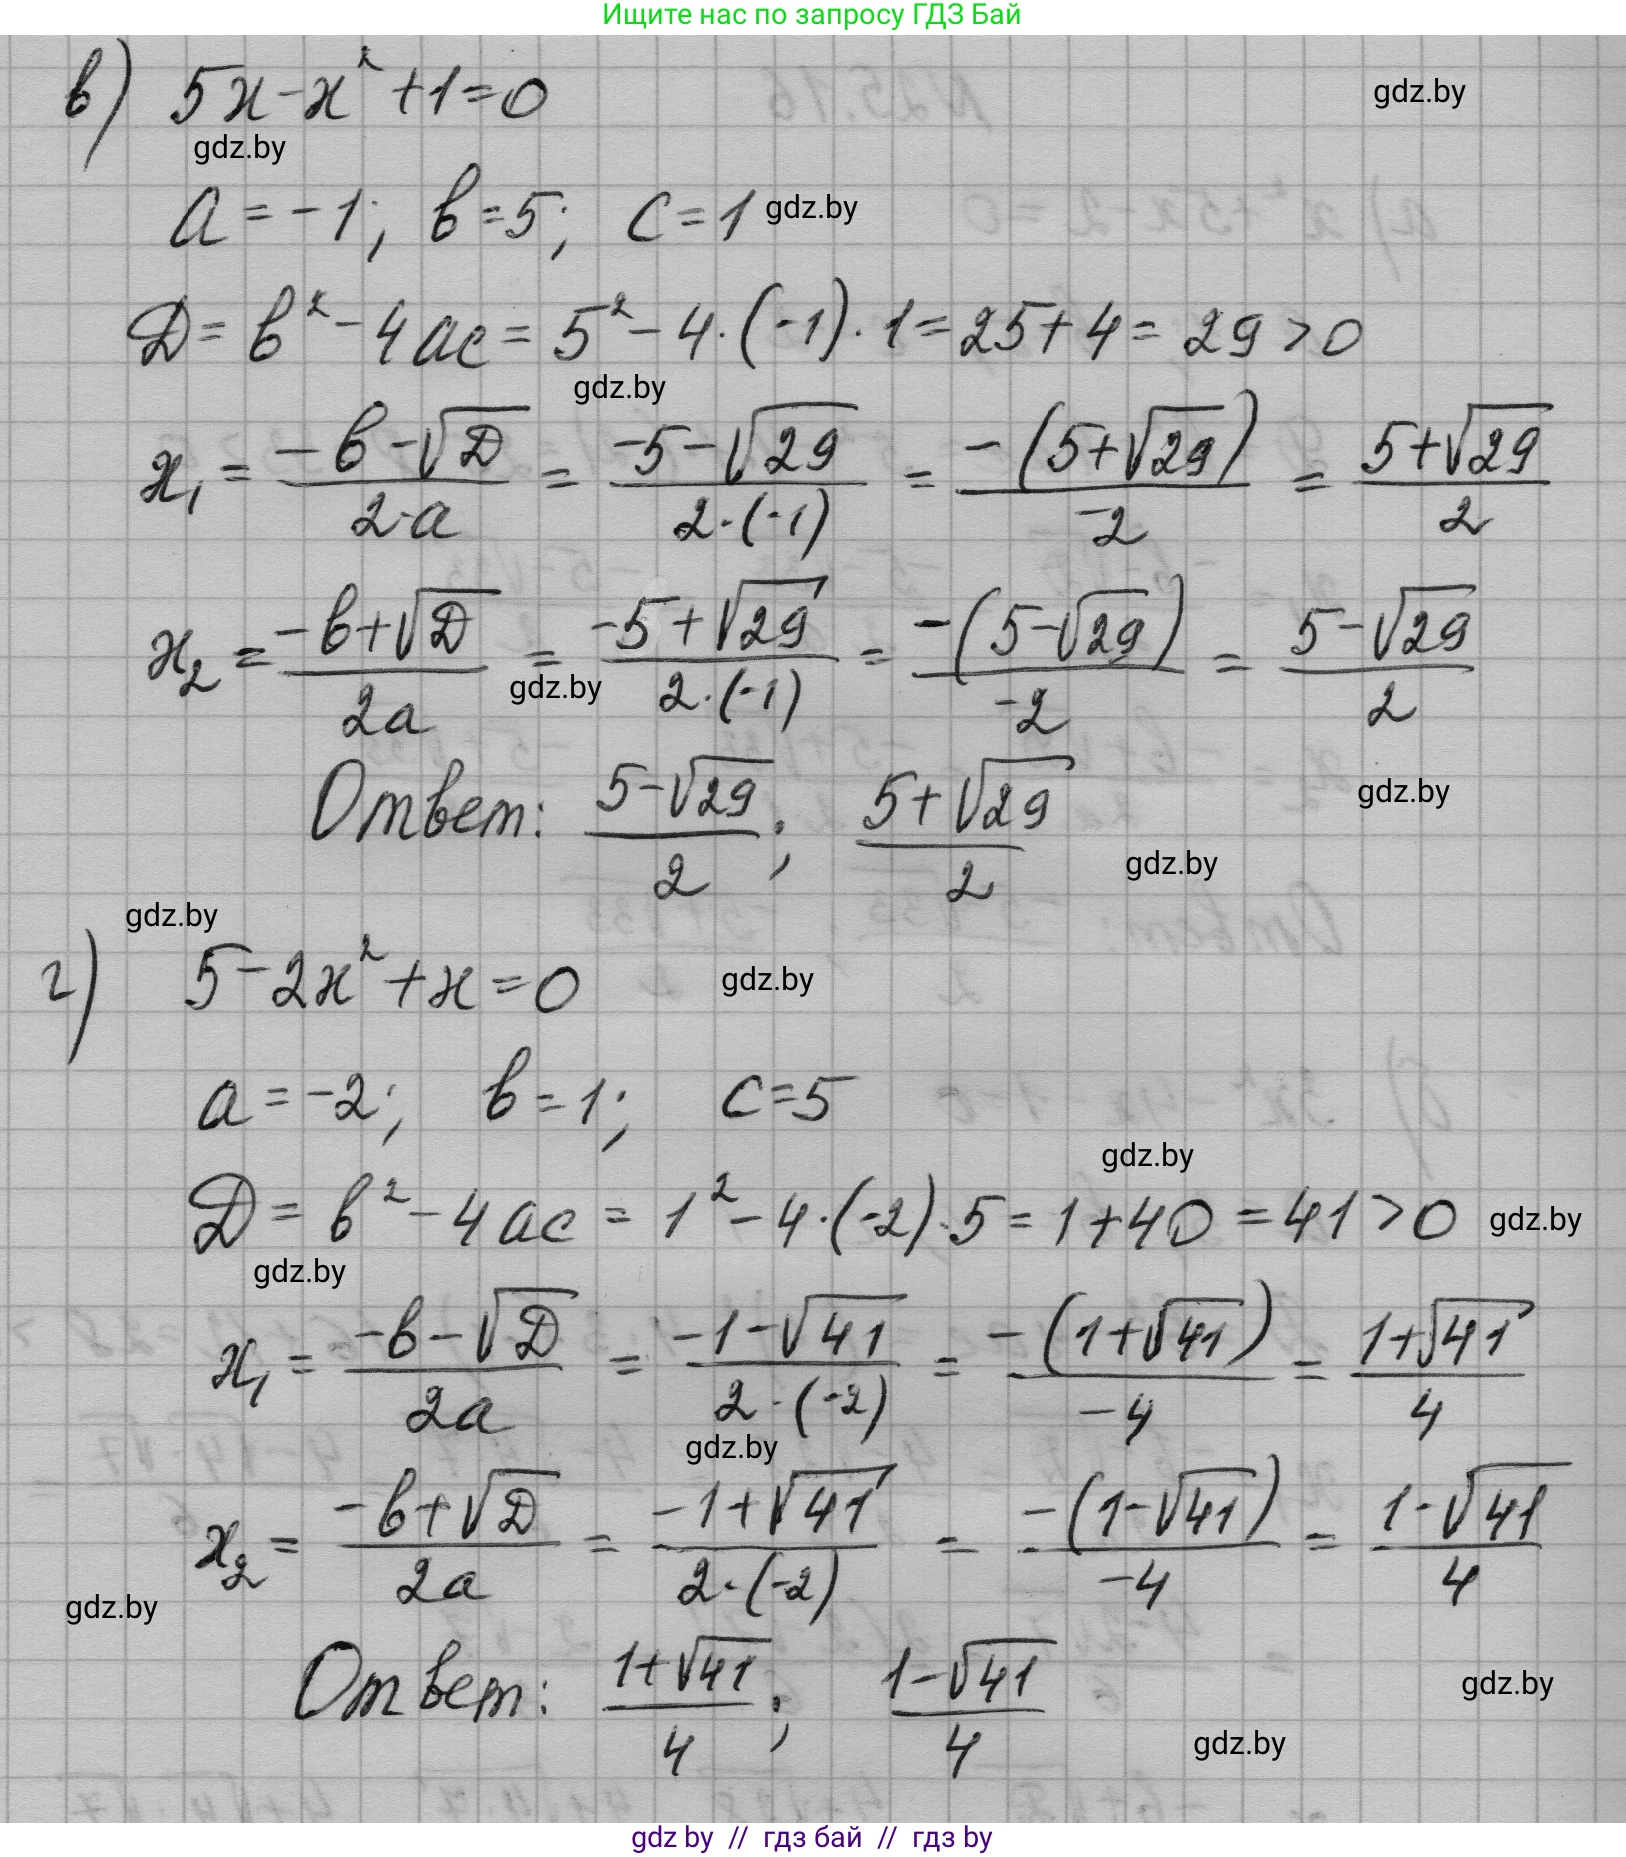 Ищите нас по запросу ГДЗ Бай
в) 5x - x² + 1 = 0
gdz.by
gdz.by
a = -1; в = 5; c = 1 gdz.by
D = в² - 4ac = 5² - 4·(-1)·1 = 25 + 4 = 29 > 0
gdz.by
x₁ = (-в - √D)/(2·a) = (-5 - √29)/(2·(-1)) = (-(5 + √29))/(-2) = (5 + √29)/2
x₂ = (-в + √D)/(2a) = (-5 + √29)/(2·(-1)) = (-(5 - √29))/(-2) = (5 - √29)/2
gdz.by
Ответ: (5 - √29)/2; (5 + √29)/2
gdz.by
gdz.by
gdz.by
г) 5 - 2x² + x = 0
gdz.by
a = -2; в = 1; c = 5
gdz.by
D = в² - 4ac = 1² - 4·(-2)·5 = 1 + 40 = 41 > 0 gdz.by
gdz.by
x₁ = (-в - √D)/(2a) = (-1 - √41)/(2·(-2)) = (-(1 + √41))/(-4) = (1 + √41)/4
gdz.by
x₂ = (-в + √D)/(2a) = (-1 + √41)/(2·(-2)) = (-(1 - √41))/(-4) = (1 - √41)/4
gdz.by
Ответ: (1 + √41)/4; (1 - √41)/4
gdz.by
gdz.by
gdz by // гдз бай // гдз by